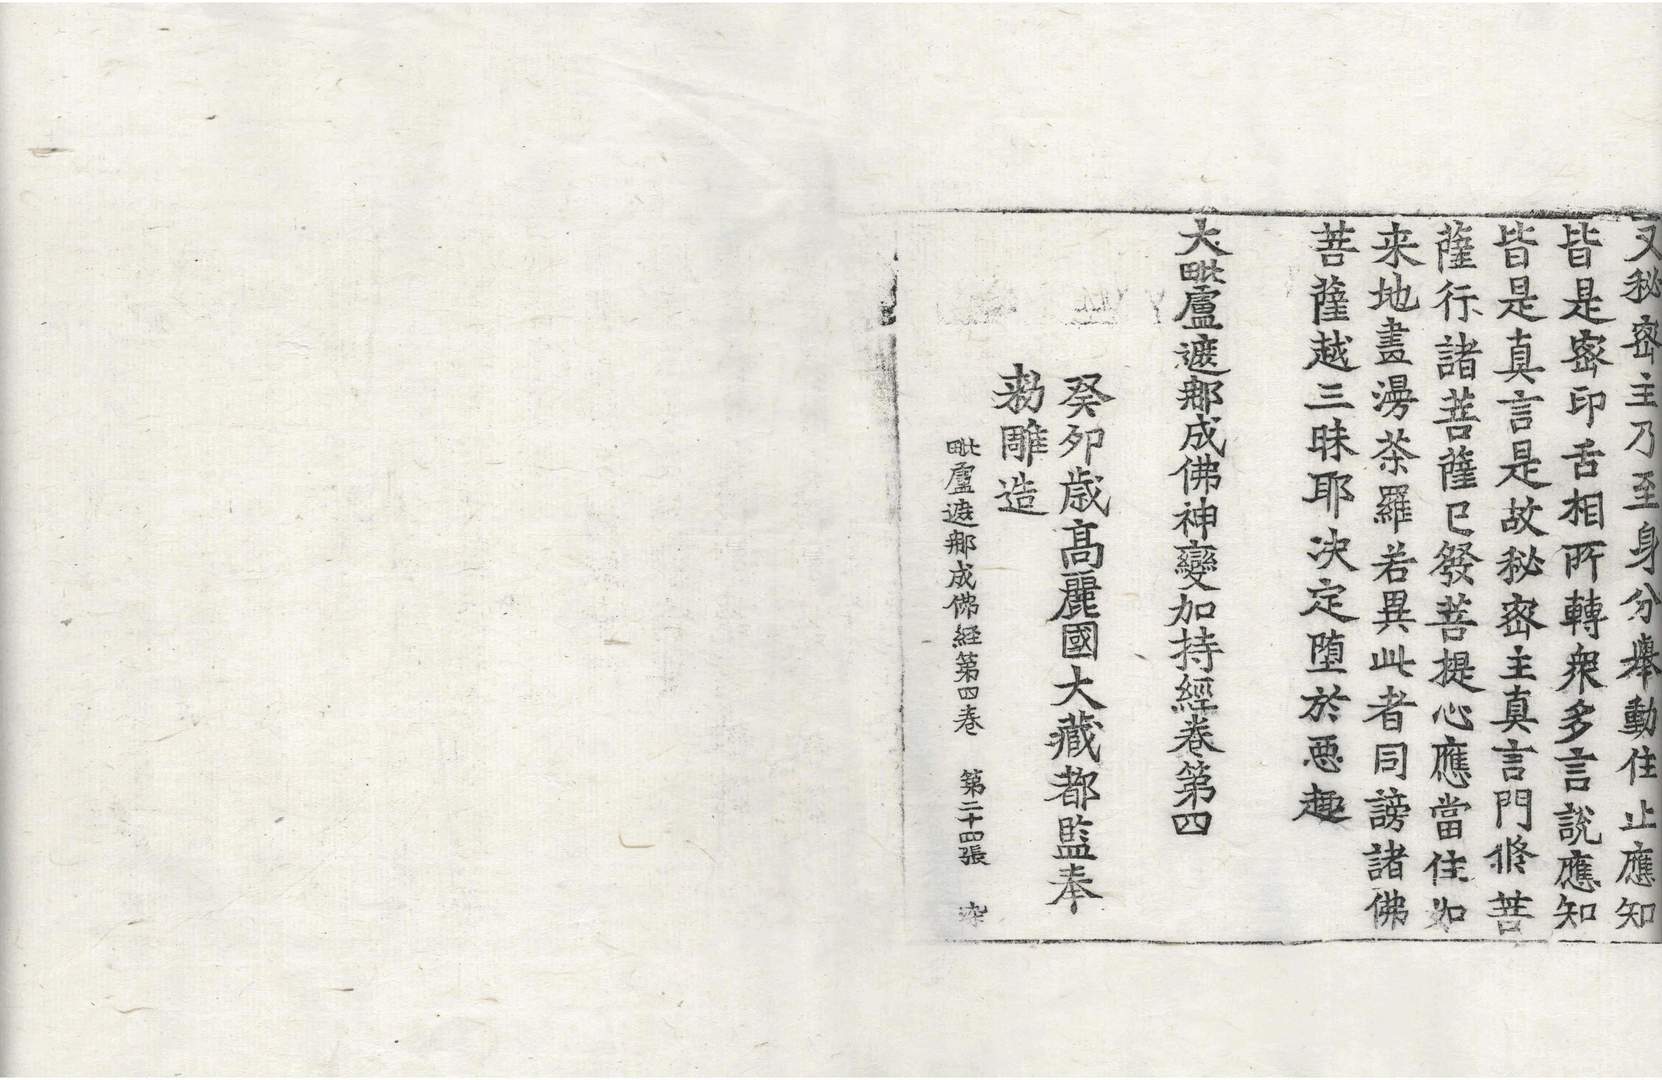 又秘密主乃至身分舉動住止應知
皆是密印舌相所轉衆多言說應知
皆是真言是故秘密主真言門修菩
薩行諸菩薩已發菩提心應當住如
来地畫漫荼羅若異此者同謗諸佛
菩薩越三昧耶决定墮於惡趣
大毗盧遮那成佛神變加持經卷第四
癸卯歲高麗國大藏都監奉
勑雕造
毗盧遮那成佛經第四卷 第二十四張 染